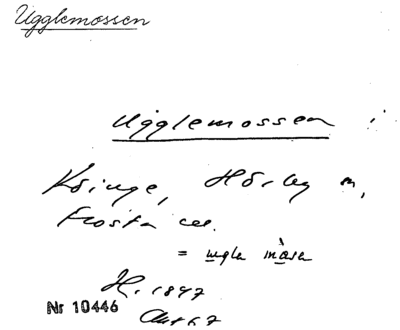 Ugglemossen
Ugglemossen i
Köinge, Hörby sn,
Frosta
= ugle måsen
H. 1847
Nr 10446